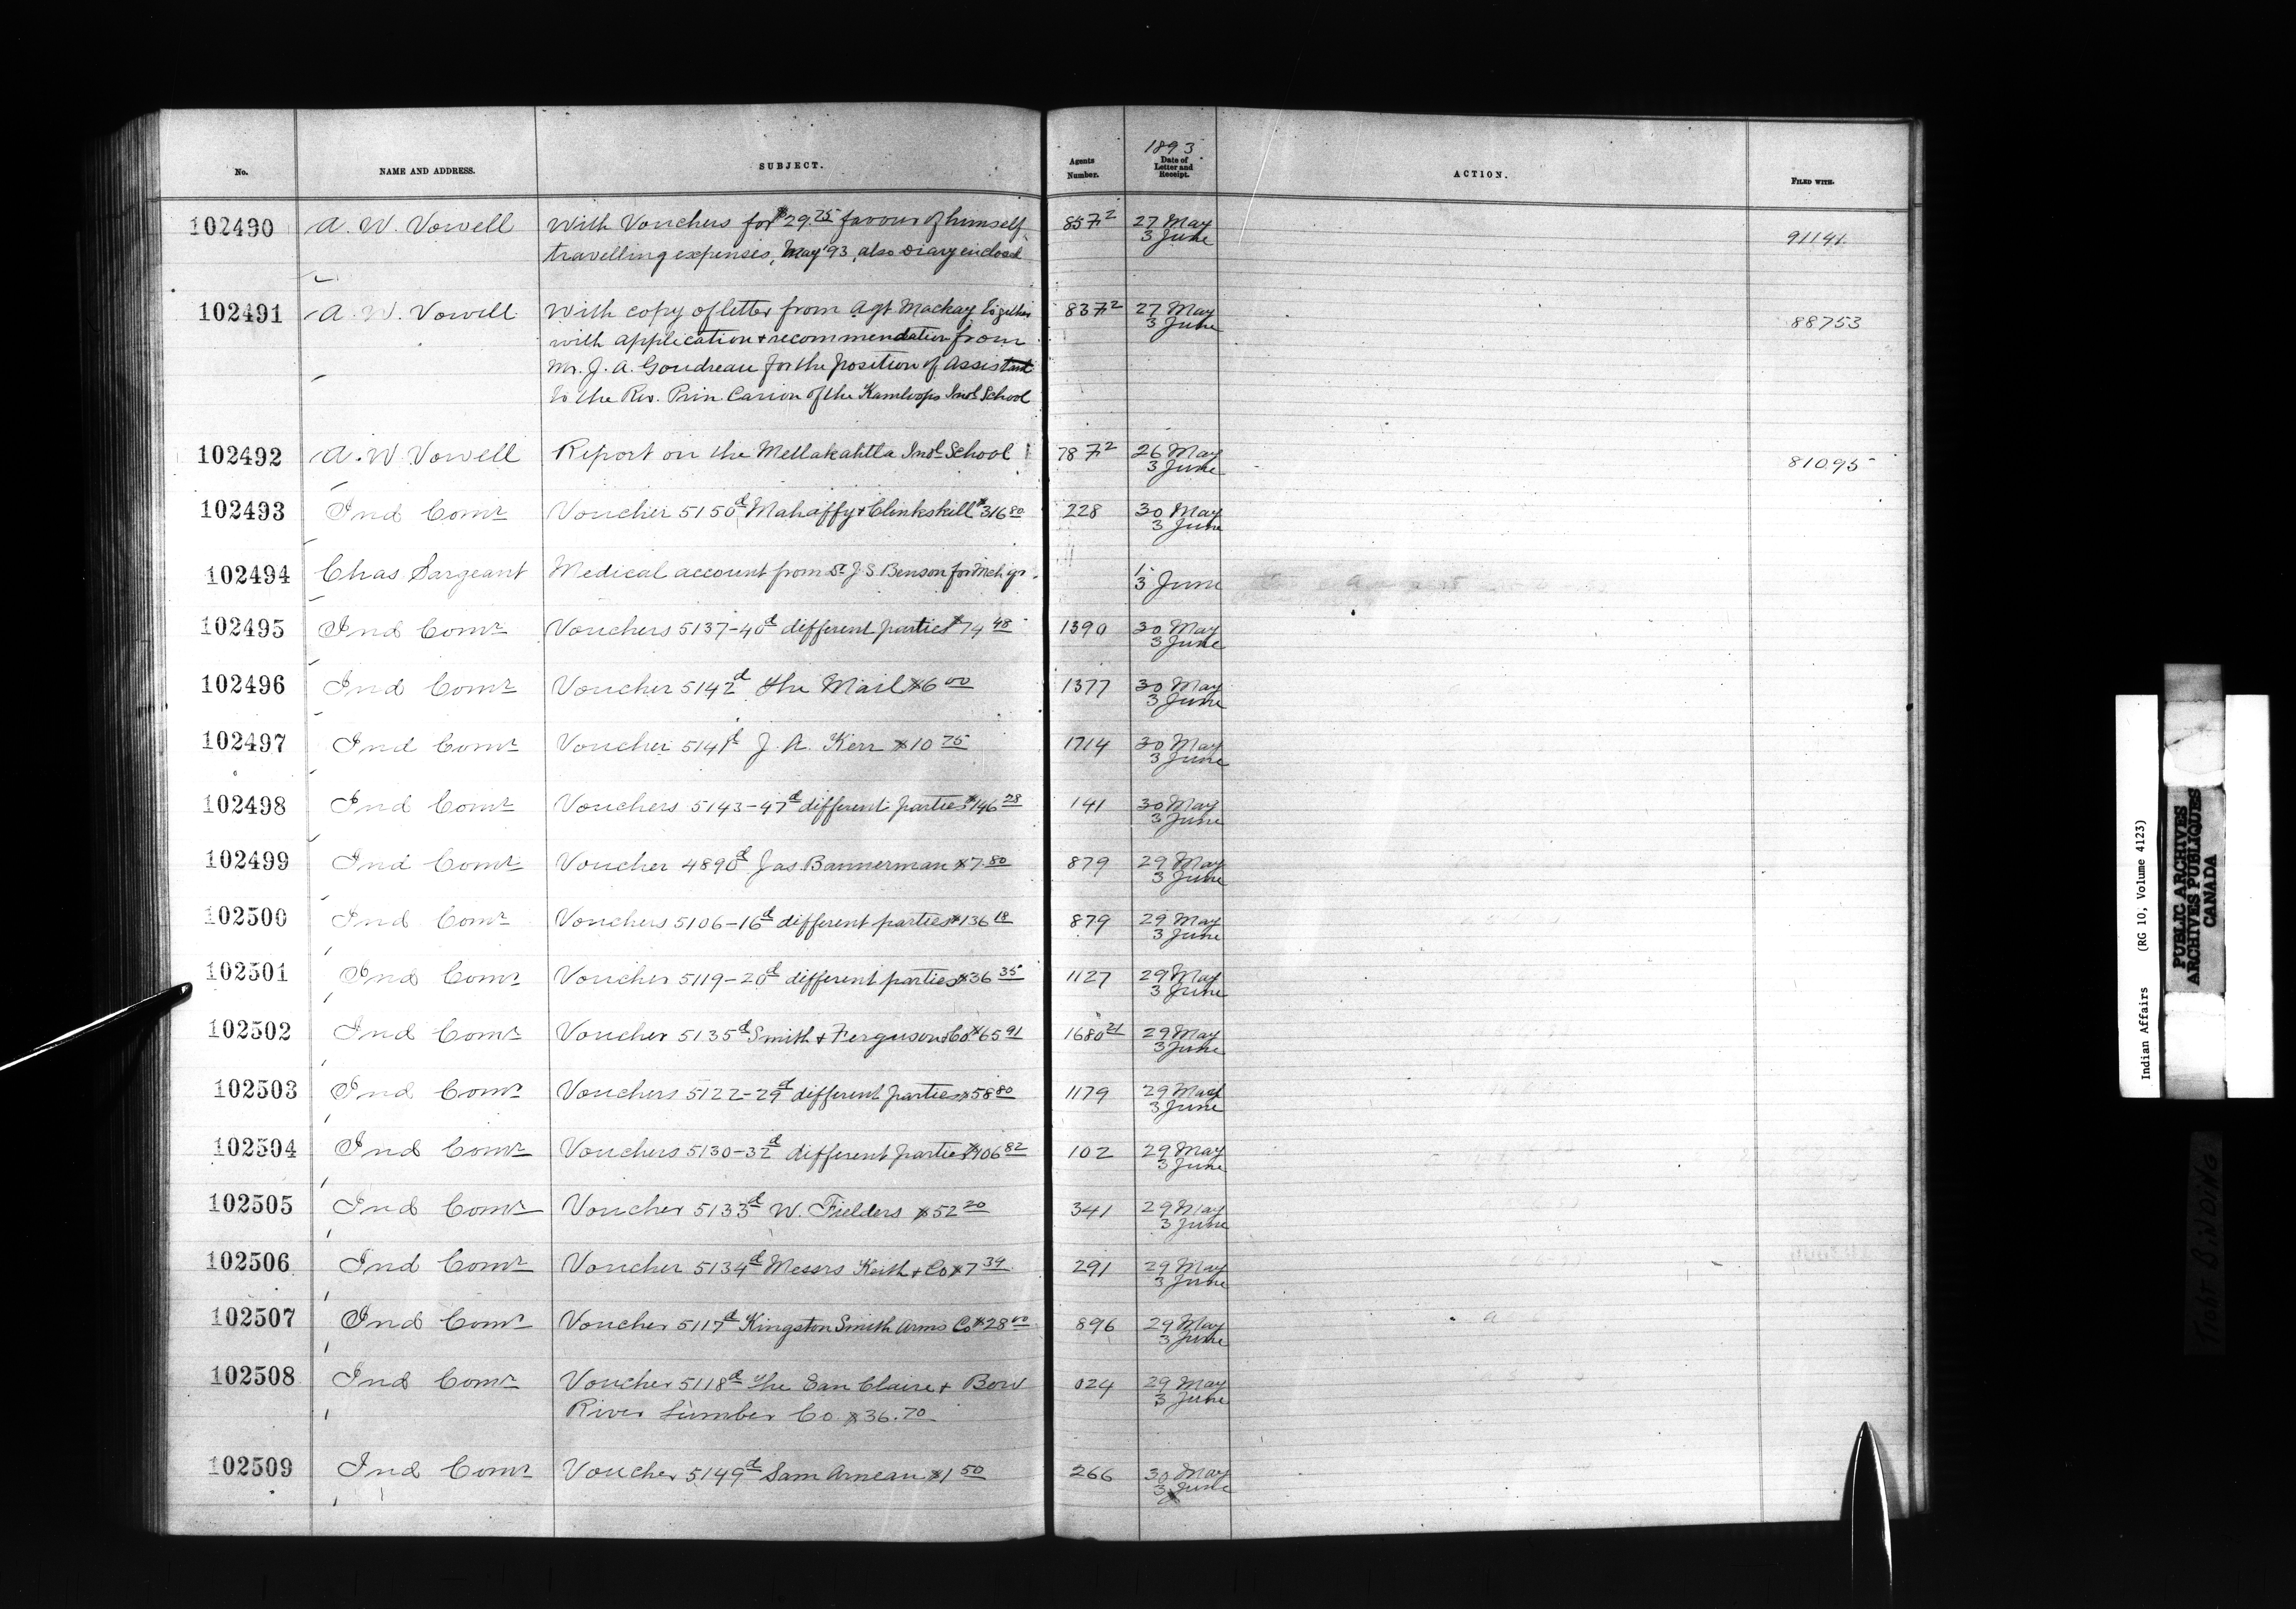 1893
No. NAME AND ADDRESS. SUBJECT. Agents Number. Date of Letter and Receipt. ACTION. FILED WITH.
102490 A. W. Vowell With Vouchers for $29.75 favour of himself 857² 27 May
travelling expenses, May '93, also Diary enclosed 3 June 91141
102491 A. W. Vowell With copy of letter from Agt Mackay together 837² 27 May
with application & recommendation from 3 June 88753
Mr. J. A. Goudreau for the position of Assistant
to the Rev. Prin. Carion of the Kamloops Indl School
102492 A. W. Vowell Report on the Metlakahtla Indl School 787² 26 May
3 June 81095
102493 Ind Comr Voucher 5150d Mahaffy & Clinkskill $316 80 228 30 May
3 June
102494 Chas Sargeant Medical account from Dr J. S. Benson for 1
3 June
102495 Ind Comr Vouchers 5137-40d different parties $74 48 1390 30 May
3 June
102496 Ind Comr Voucher 5142d The Mail $6 00 1377 30 May
3 June
102497 Ind Comr Voucher 5141d J. A. Kerr $10 75 1714 30 May
3 June
102498 Ind Comr Vouchers 5143-47d different parties $146 28 141 30 May
3 June
102499 Ind Comr Voucher 4890d Jas. Bannerman $7.80 879 29 May
3 June
102500 Ind Comr Vouchers 5106-16d different parties $136 18 879 29 May
3 June
102501 Ind Comr Voucher 5119-20d different parties $36 35 1127 29 May
3 June
102502 Ind Comr Voucher 5135d Smith & Ferguson Co $65 91 1680 21 29 May
3 June
102503 Ind Comr Vouchers 5122-29d different parties $58 80 1179 29 May
3 June
102504 Ind Comr Vouchers 5130-32d different parties $106 82 102 29 May
3 June
102505 Ind Comr Voucher 5133d W. Fielders $52 20 341 29 May
3 June
102506 Ind Comr Voucher 5134d Messrs Keith & Co $7 39 291 29 May
3 June
102507 Ind Comr Voucher 5117d Kingston Smith Arms Co $28 00 896 29 May
3 June
102508 Ind Comr Voucher 5118d The Eau Claire & Bow 024 29 May
River Lumber Co $36.70 3 June
102509 Ind Comr Voucher 5149d Sam Arneau $1 50 266 30 May
3 June
Indian Affairs (RG 10, Volume 4123)
PUBLIC ARCHIVES
ARCHIVES PUBLIQUES
CANADA
TIGHT BINDING